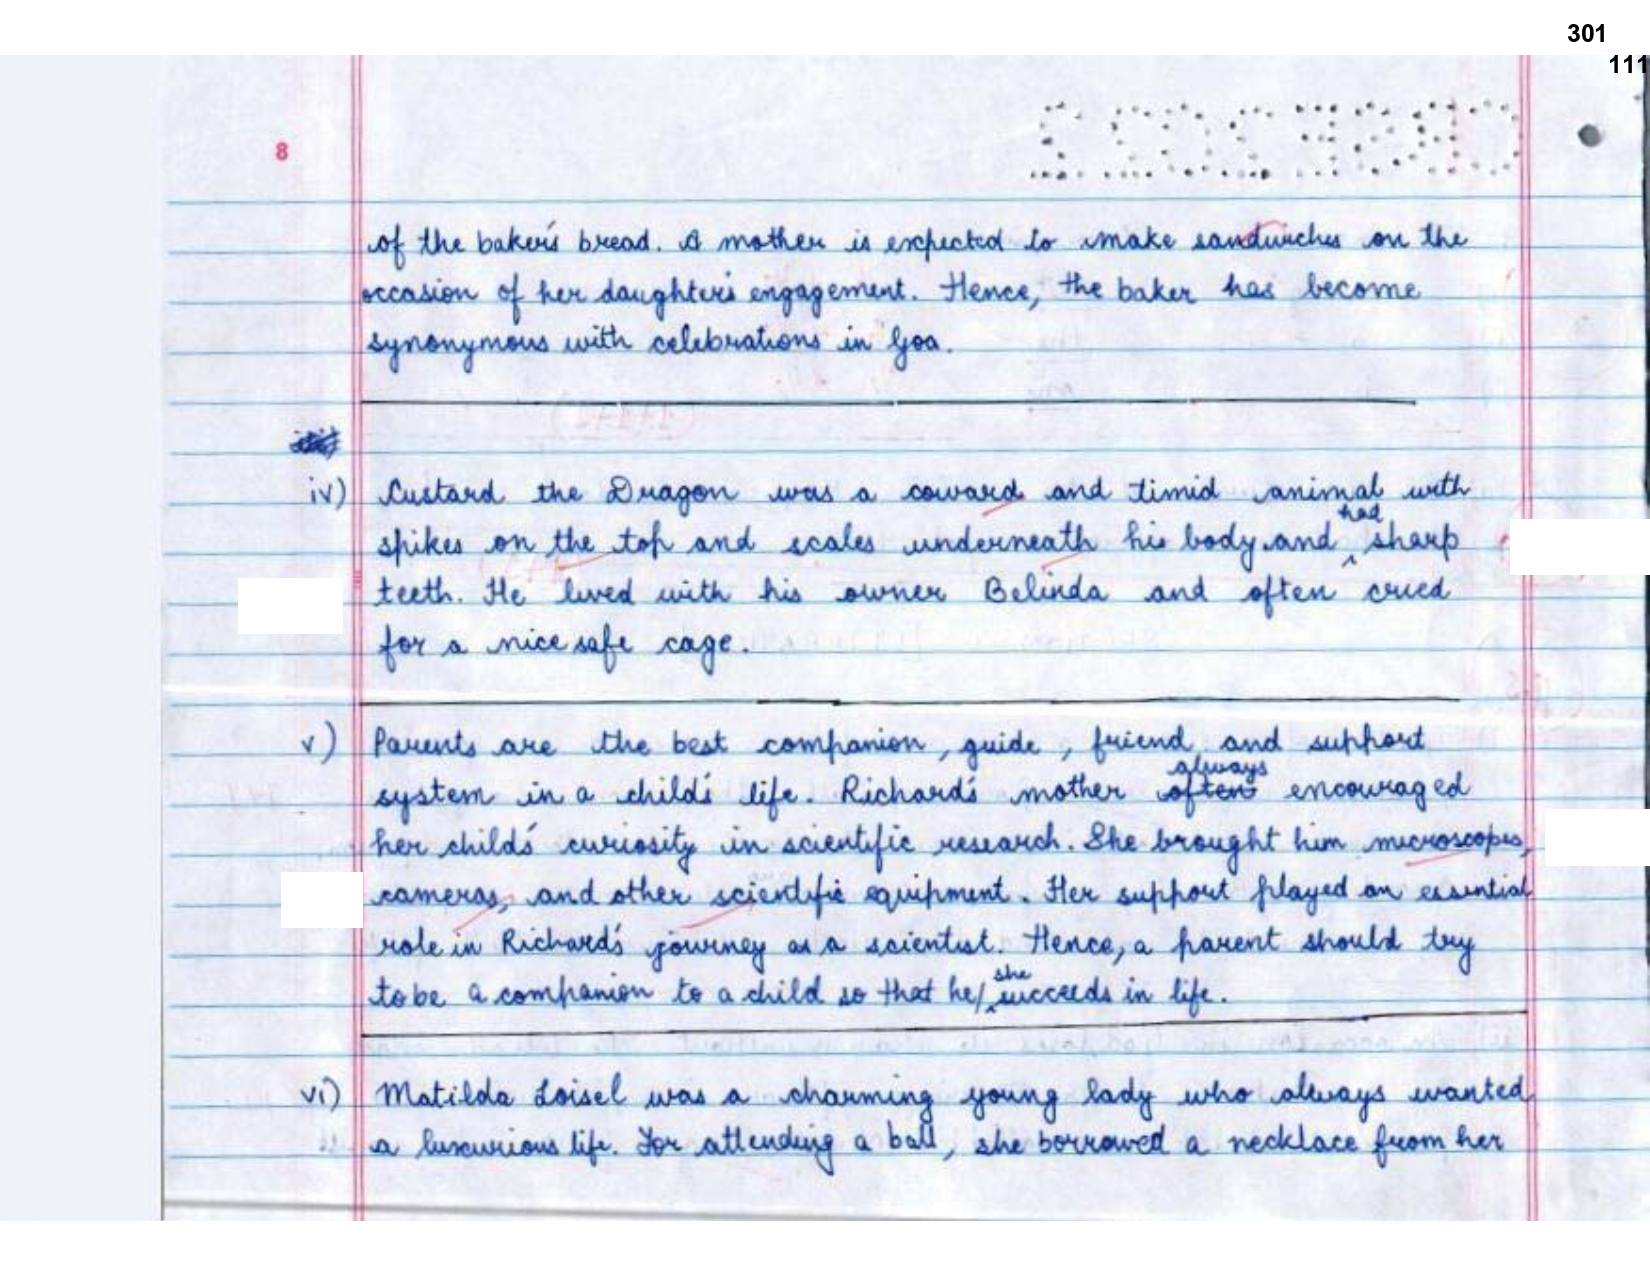 301
111
CBSE2022
8
of the baker's bread. A mother is expected to make sandwiches on the
occasion of her daughter's engagement. Hence, the baker has become
synonymous with celebrations in Goa.
iv) Custard the Dragon was a coward and timid animal with
spikes on the top and scales underneath his body and had sharp
teeth. He lived with his owner Belinda and often cried
for a nice safe cage.
v) Parents are the best companion, guide, friend and support
system in a child's life. Richard's mother often always encouraged
her child's curiosity in scientific research. She brought him microscopes,
cameras, and other scientific equipment. Her support played an essential
role in Richard's journey as a scientist. Hence, a parent should try
to be a companion to a child so that he/she succeeds in life.
vi) Matilda Loisel was a charming young lady who always wanted
a luxurious life. For attending a ball, she borrowed a necklace from her